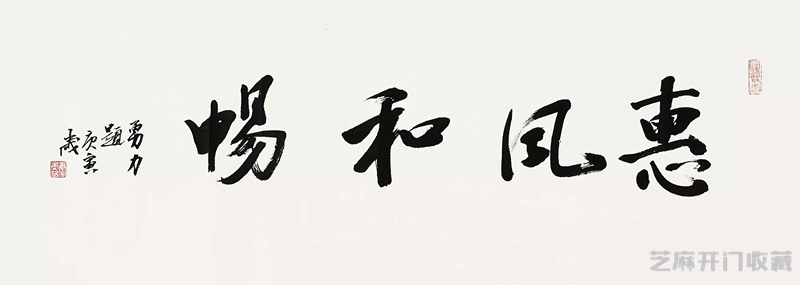 惠风和畅
勇力
题
庚寅
岁
芝麻开门收藏